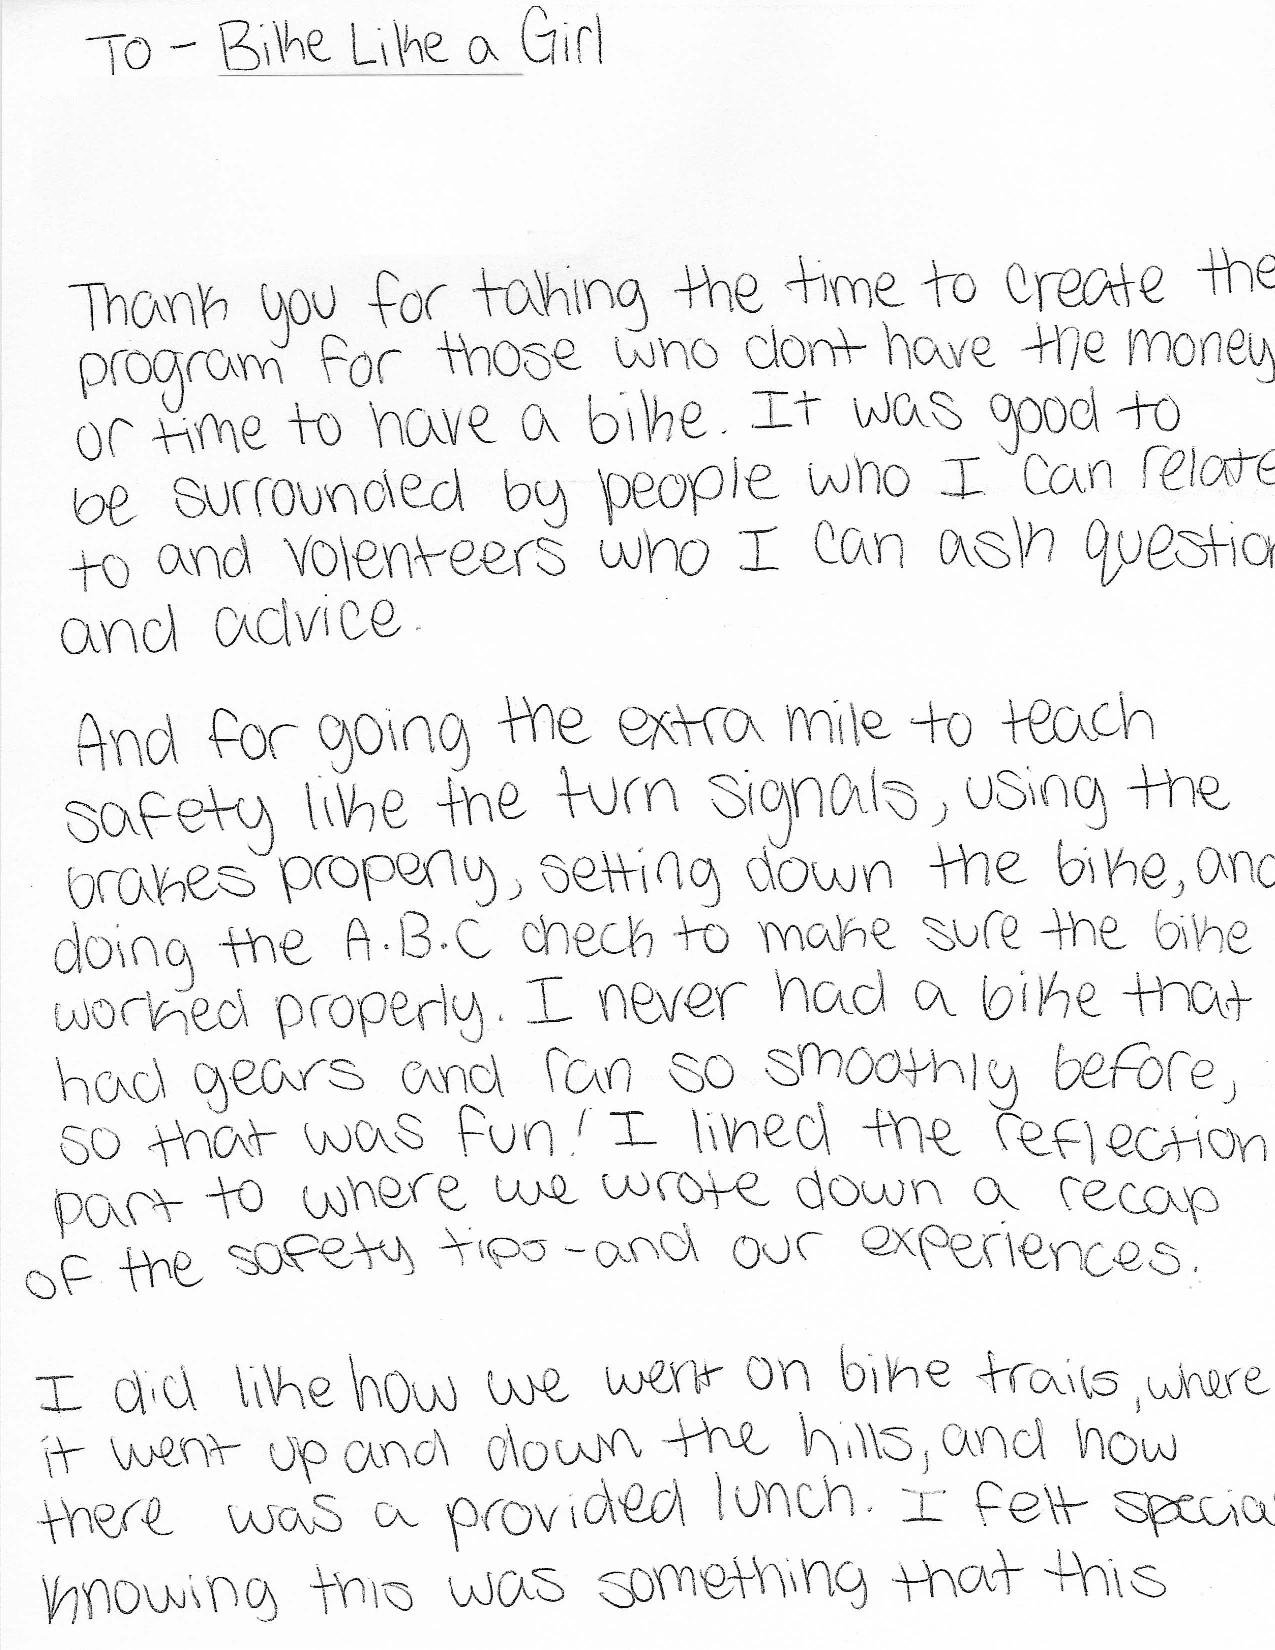 To - Bike Like a Girl
Thank you for taking the time to create the
program for those who dont have the money
or time to have a bike. It was good to
be surrounded by people who I can relate
to and volenteers who I can ask question
and advice.
And for going the extra mile to teach
safety like the turn signals, using the
brakes properly, setting down the bike, and
doing the A.B.C check to make sure the bike
worked properly. I never had a bike that
had gears and ran so smoothly before,
so that was fun! I liked the reflection
part to where we wrote down a recap
of the safety tips - and our experiences.
I did like how we went on bike trails, where
it went up and down the hills, and how
there was a provided lunch. I felt special
knowing this was something that this